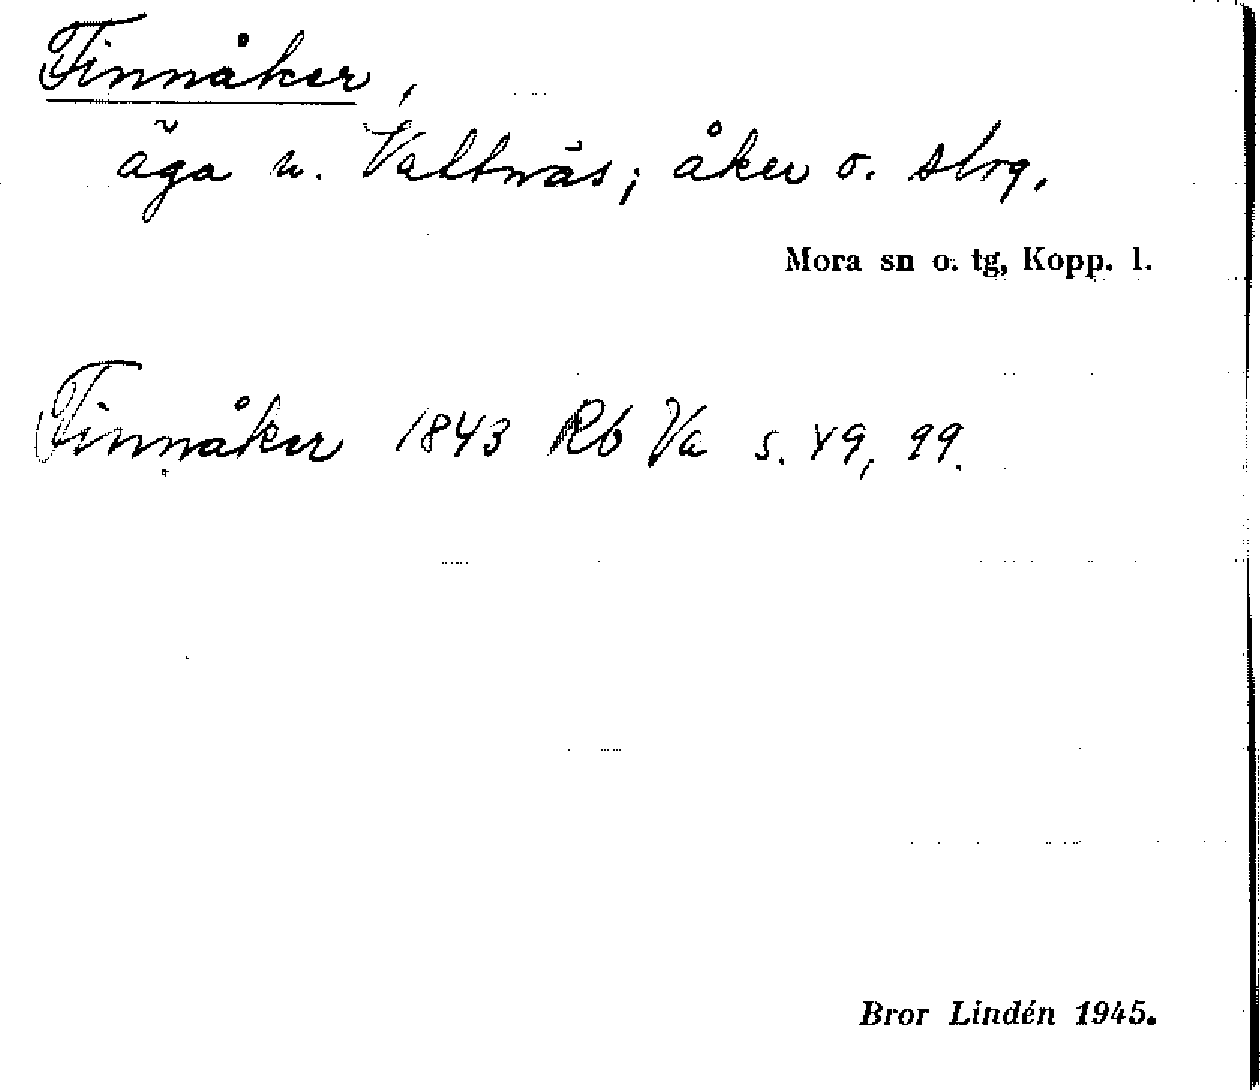 Finnåker,
äga n. Vattnäs; åker o. slog.
Mora sn o. tg, Kopp. l.
Finnåker 1843 Rb Va s. 49, 99.
Bror Lindén 1945.